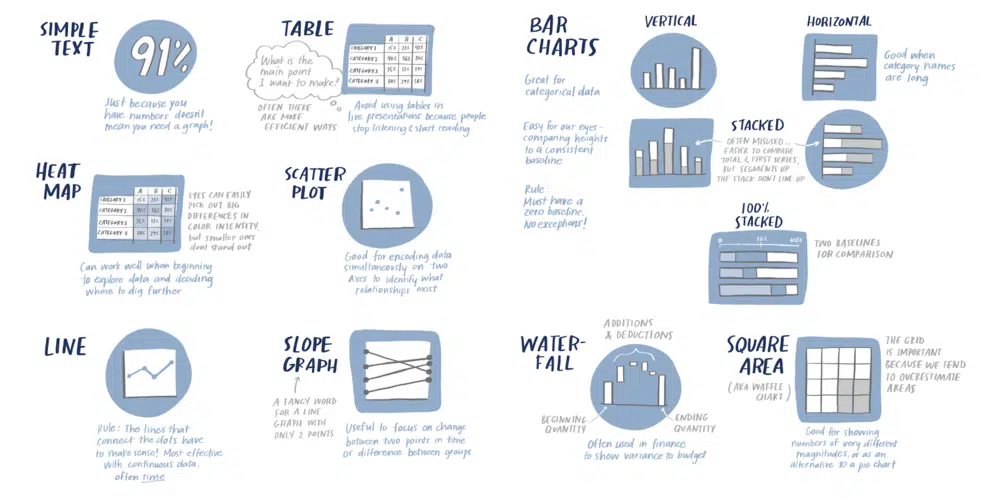 SIMPLE
TEXT
91%
Just because you
have numbers doesn't
mean you need a graph!
TABLE
What is the
main point
I want to make?
OFTEN THERE
ARE MORE
EFFICIENT WAYS
A B C
CATEGORY 1
CATEGORY 2
CATEGORY 3
CATEGORY 4
Avoid using tables in
live presentations because people
stop listening & start reading
HEAT
MAP
A B C
CATEGORY 1
CATEGORY 2
CATEGORY 3
CATEGORY 4
EYES CAN EASILY
PICK OUT BIG
DIFFERENCES IN
COLOR INTENSITY,
but smaller ones
dont stand out
Can work well when beginning
to explore data and deciding
where to dig further
SCATTER
PLOT
Good for encoding data
simultaneously on two
Axes to identify what
relationships exist
LINE
Rule: The lines that
connect the dots have
to make sense! Most effective
with continuous data,
often time
SLOPE
GRAPH
A FANCY WORD
FOR A LINE
GRAPH WITH
ONLY 2 POINTS
Useful to focus on change
between two points in time
or difference between groups
BAR
CHARTS
Great for
categorical data
Easy for our eyes-
comparing heights
to a consistent
baseline
Rule:
Must have a
zero baseline.
No exceptions!
VERTICAL
HORIZONTAL
Good when
category names
are long
STACKED
OFTEN MISUSED...
EASIER TO COMPARE
TOTAL & FIRST SERIES,
BUT SEGMENTS UP
THE STACK DON'T LINE UP
100%
STACKED
0 50% 100%
TWO BASELINES
FOR COMPARISON
WATER-
FALL
ADDITIONS
& DEDUCTIONS
BEGINNING
QUANTITY
ENDING
QUANTITY
Often used in finance
to show variance to budget
SQUARE
AREA
(AKA WAFFLE
CHART)
THE GRID
IS IMPORTANT
BECAUSE WE TEND
TO OVERESTIMATE
AREAS
Good for showing
numbers of very different
magnitudes, or as an
alternative to a pie chart